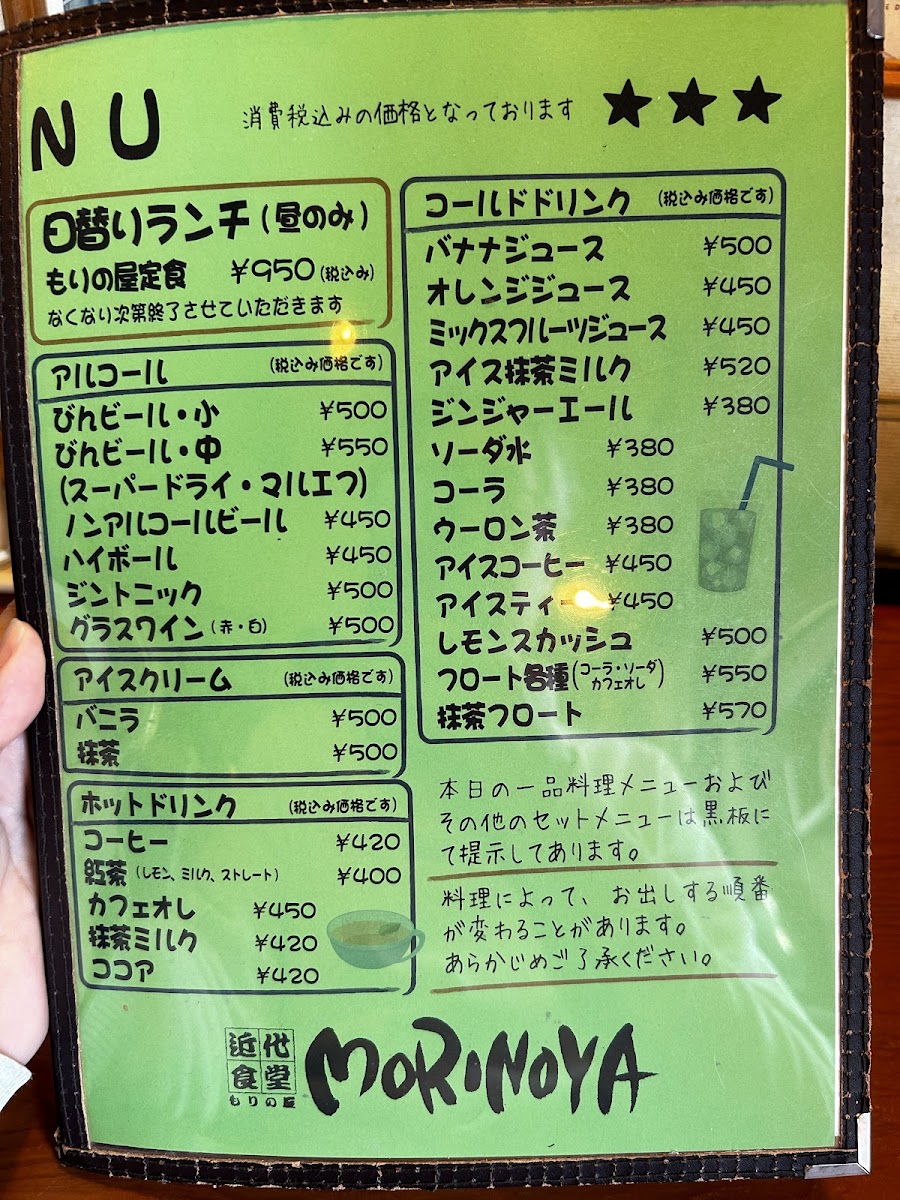 NU 消費税込みの価格となっております ★★★
日替りランチ(昼のみ)
もりの屋定食 ¥950(税込み)
なくなり次第終了させていただきます
アルコール (税込み価格です)
びんビール・小 ¥500
びんビール・中 ¥550
(スーパードライ・マルエフ)
ノンアルコールビール ¥450
ハイボール ¥450
ジントニック ¥500
グラスワイン(赤・白) ¥500
アイスクリーム (税込み価格です)
バニラ ¥500
抹茶 ¥500
ホットドリンク (税込み価格です)
コーヒー ¥420
紅茶(レモン、ミルク、ストレート) ¥400
カフェオレ ¥450
抹茶ミルク ¥420
ココア ¥420
コールドドリンク (税込み価格です)
バナナジュース ¥500
オレンジジュース ¥450
ミックスフルーツジュース ¥450
アイス抹茶ミルク ¥520
ジンジャーエール ¥380
ソーダ水 ¥380
コーラ ¥380
ウーロン茶 ¥380
アイスコーヒー ¥450
アイスティー ¥450
レモンスカッシュ ¥500
フロート各種(コーラ・ソーダ
カフェオレ) ¥550
抹茶フロート ¥570
本日の一品料理メニューおよび
その他のセットメニューは黒板に
て提示してあります。
料理によって、お出しする順番
が変わることがあります。
あらかじめご了承ください。
近代
食堂
もりの屋
MORINOYA